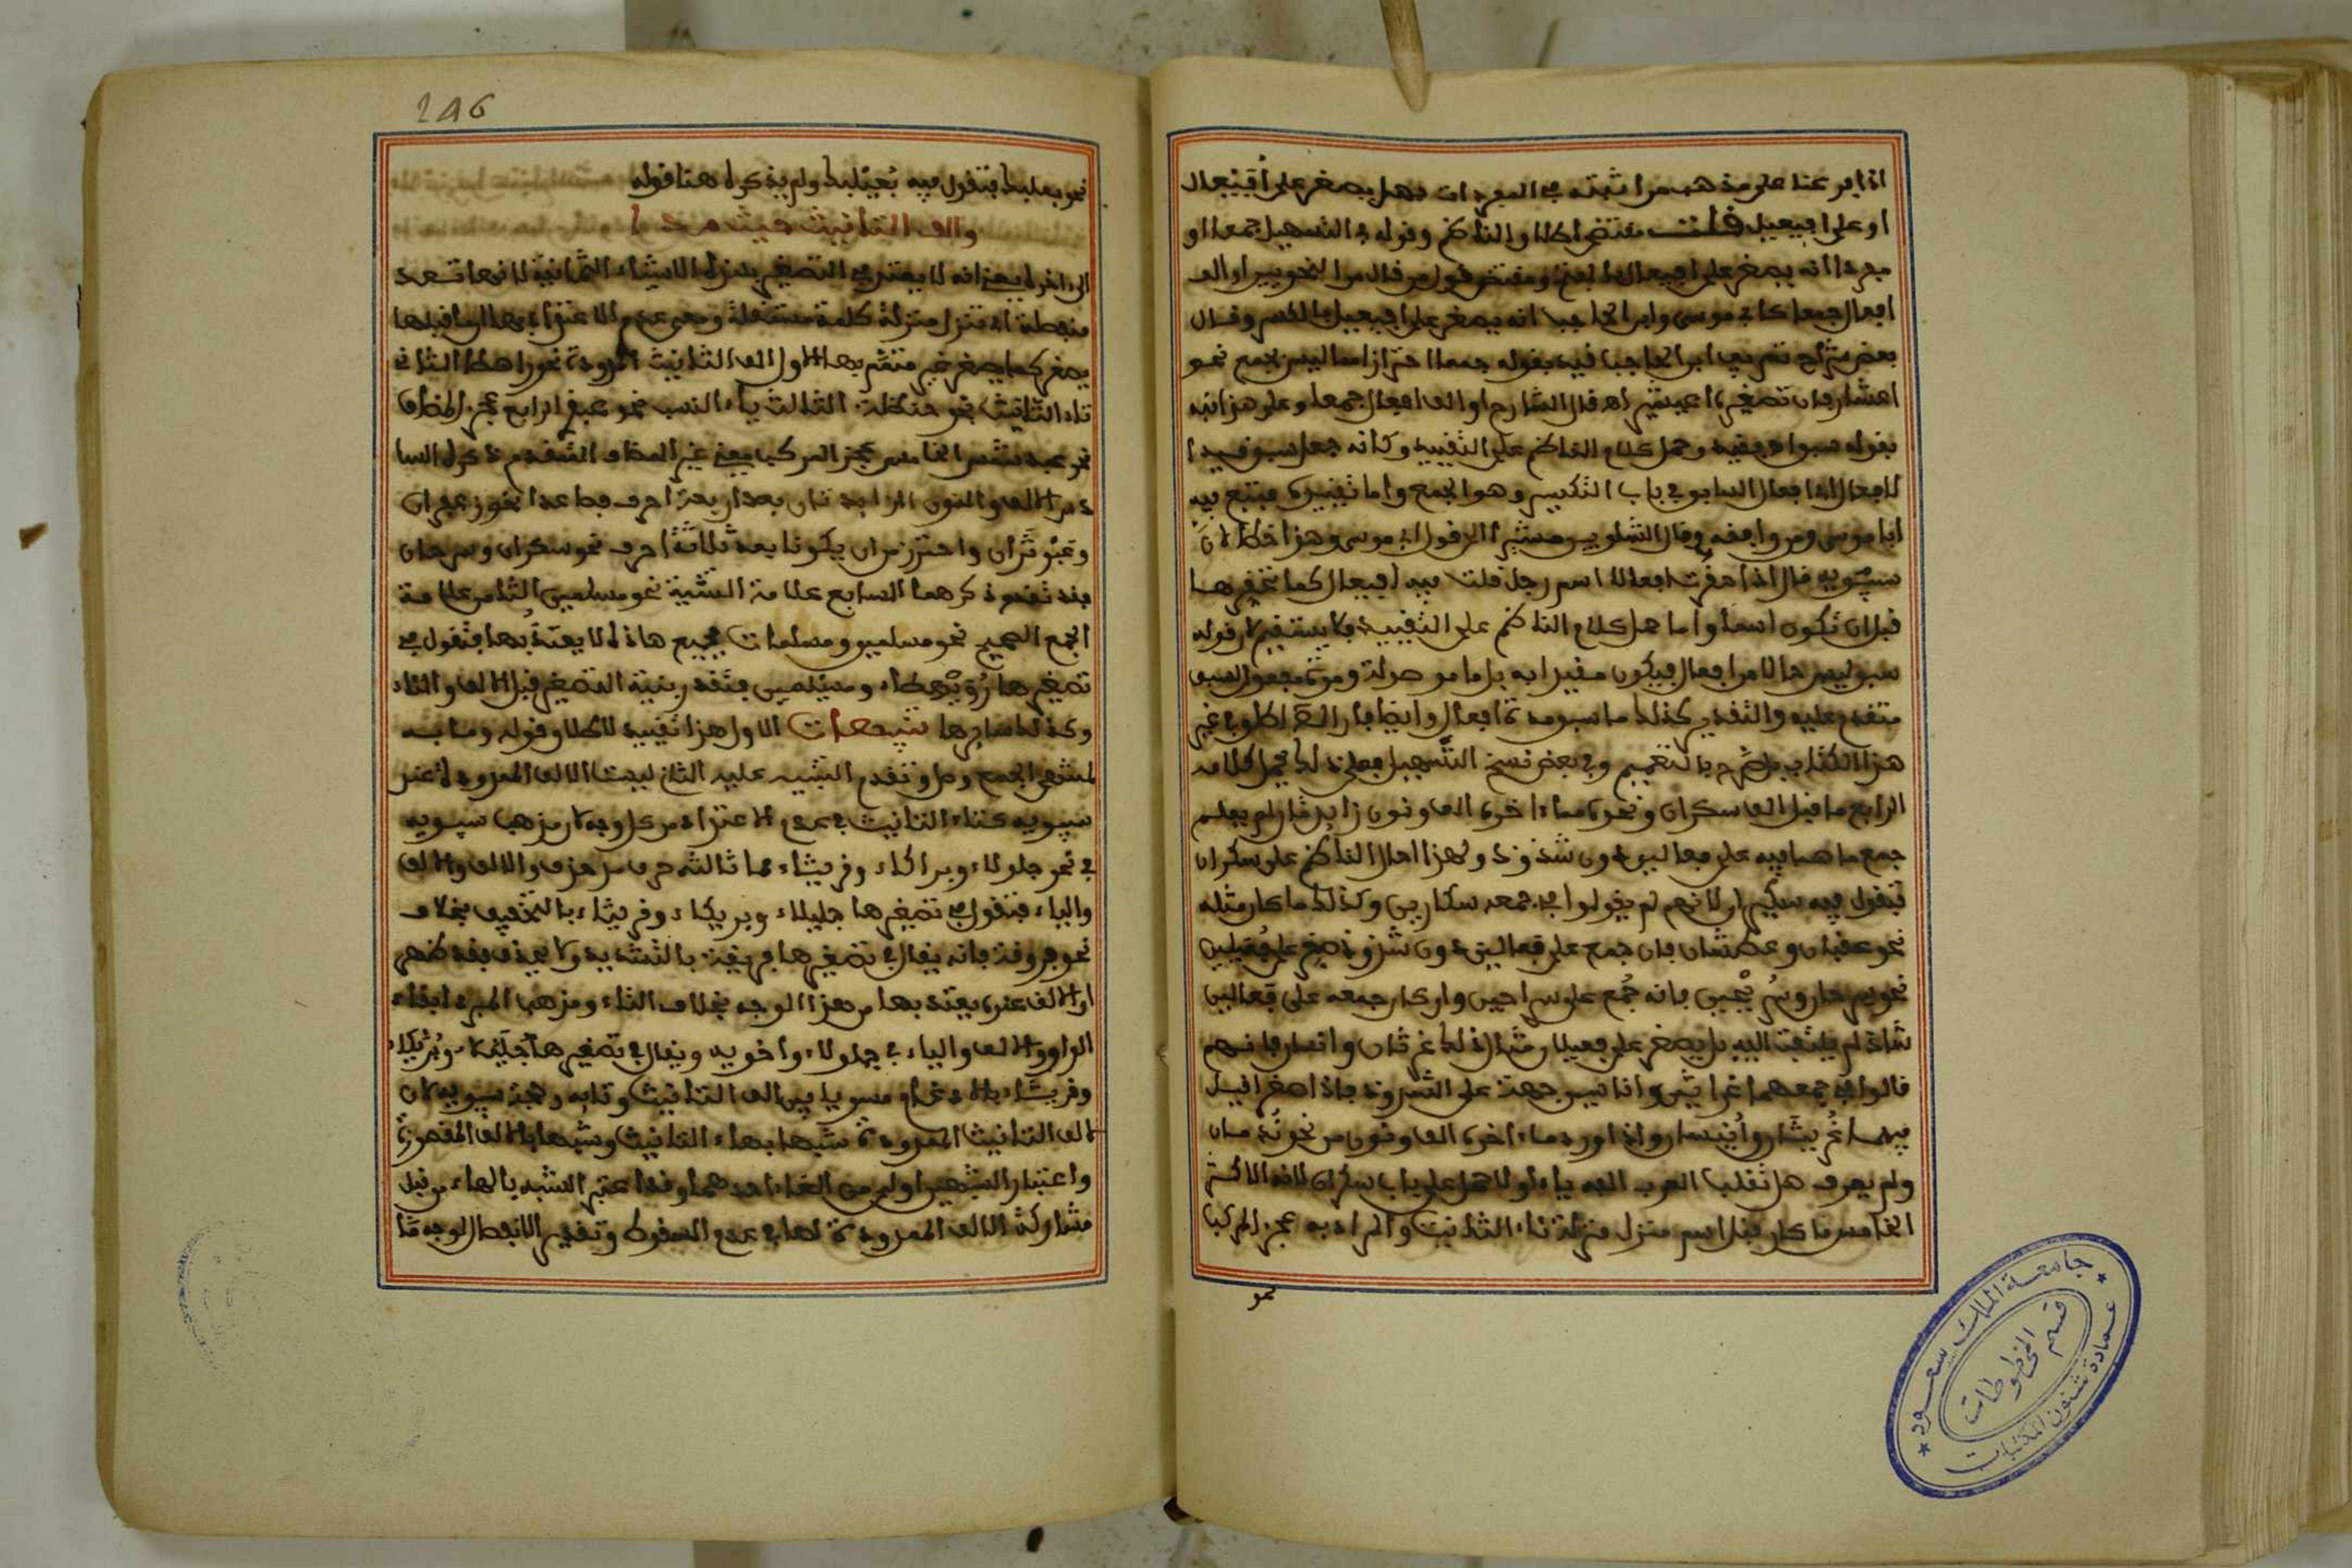 اذا فرعنا على مذهب من اثبته في المفردات فهل يصغر على أفيعال
او على افيعيل قلت مقتضى اطلاق الناظم وقوله في التسهيل جمعا او
مفردا انه يصغر على افيعال ومقتضى قول من قال من النحويين او الف
افعال جمعا كابي موسى وابن الحاجب انه يصغر على افيعيل بالكسر وقال
بعض شراح تصريف ابن الحاجب قيد بقوله جمعا احترازا مما ليس بجمع نحو
اعشار فان تصغيره اعيشير قال الشارح او الف افعال جمعا وعلى هذا نبه
بقوله سبق فقيد وحمل كلام الناظم على التقييد وكانه جعل سبق قيدا
لافعال اي افعال السابق في باب التكسير وهو الجمع واما تقييده فتبع فيه
ابا موسى ومن وافقه وقال الشلوبين مشيرا الى قول ابي موسى وهذا خطا لان
سيبويه قال اذا حقرت افعالا اسم رجل قلت فيه افيعال كما تحقرها
قبل ان تكون اسما واما حمل كلام الناظم على التقييد فلا يستقيم لان قوله
سبق ليس حالا من افعال فيكون مقيدا به بل ما موصولة ومدة مفعول لسبق
متقدم عليه والتقدير كذلك ما سبق مدة افعال وايضا فان الناظم اطلق في غير
هذا الكتاب بل صرح بالتعميم وفي بعض نسخ التسهيل فعلى ذلك يحمل كلامه
الرابع ما قبل الف سكران ونحوه مما اخره الف ونون زايدتان لم يعلم
جمع ما هما فيه على فعالين دون شذوذ ولهذا احال الناظم على سكران
فتقول فيه سكيران لانهم لم يقولوا في جمعه سكارين وكذلك ما كان مثله
نحو عطشان فان جمع على فعالين دون شذوذ صغر على فعيلين
نحو سرحان وسريحين فانه جمع على سراحين وان كان جمعه على فعالين
شاذ لم يلتفت اليه بل يصغر على فعيلان مثال ذلك غرثان وانسان فانهم
قالوا في جمعهما غراثين واناسين جهة على الشذوذ فاذا صغرا قيل
فيهما غريثان وأنيسان واذا ورد ما اخره الف ونون من نحو
ولم يعرف هل تقلب العرب الفه ياء اولا حمل على باب سكران لانه الاكثر
الخامس ما كان قبل اسم منزل منزلة تاء التانيث والمراد به عجز المركب
نحو
246
نحو بعلبك فتقول فيه بُعيلبك ولم يذكره هنا قوله
والف التانيث حيث مدا
الى اخره يعني انه لا يعتد في التصغير بهذه الاشياء الثمانية لانها تعد
منفصلة اي تنزل منزلة كلمة مستقلة ومعنى عدم الاعتداد بها ان ما قبلها
يصغر كما يصغر غير متمم بها الاول الف التانيث الممدودة نحو راهطا الثاني
تاء التانيث نحو حنظلة الثالث ياء النسب نحو عبقري الرابع عجز المضاف
نحو عبد شمس الخامس عجز المركب يعني غير المضاف المتقدم ذكره السا
دس الالف والنون الزايدتان بعد اربعة احرف فصاعدا نحو زعفران
وعبوثران واحترز من ان يكونا بعد ثلاثة احرف نحو سكران وسرحان
فقد تقدم ذكرهما السابع علامة التثنية نحو مسلمين الثامن علامة
الجمع الصحيح نحو مسلمين ومسلمات فجميع هاذه لا يعتد بها فتقول في
تصغيرها رويهطاء ومسيلمين فتقدر بنية التصغير قبل الالف والتاء
وكذلك سايرها تنبيهات الاول هذا تقييد لاطلاق قوله وما به
لمنتهى الجمع وصل وتقدم التنبيه عليه الثاني ليست الالف الممدودة عند
سيبويه كتاء التانيث في عدم الاعتداد من كل وجه لان مذهب سيبويه
في نحو جلولاء وبراكاء وقريثاء مما ثالثه حرف مد حذف والالف والالف
والياء فتقول في تصغيرها جليلاء وبريكاء وقريثاء بالتخفيف بخلاف
نحو فروقة فانه يقال في تصغيرها فريقة بالتشديد ولا يحذف فقد ظهر
ان الالف عنده يعتد بها من هذا الوجه بخلاف التاء ومذهب المبرد ابقاء
الواو والالف والياء في جلولاء واخويه ويقال في تصغيرها جليلاء وبريكاء
وقريثاء بالادغام مسويا بين الف التانيث وتايه وحجة سيبويه لان
لالف التانيث الممدودة شبها بهاء التانيث وشبها بالالف المقصورة
واعتبار الشبهين اولى من الغاء احدهما وقد اعتبر الشبه بالهاء من قبل
مشاركة الالف الممدودة لها في عدم السقوط وتقدير الانفصال لوجه ما
جامعة الملك سعود
قسم المخطوطات
عمادة شئون المكتبات